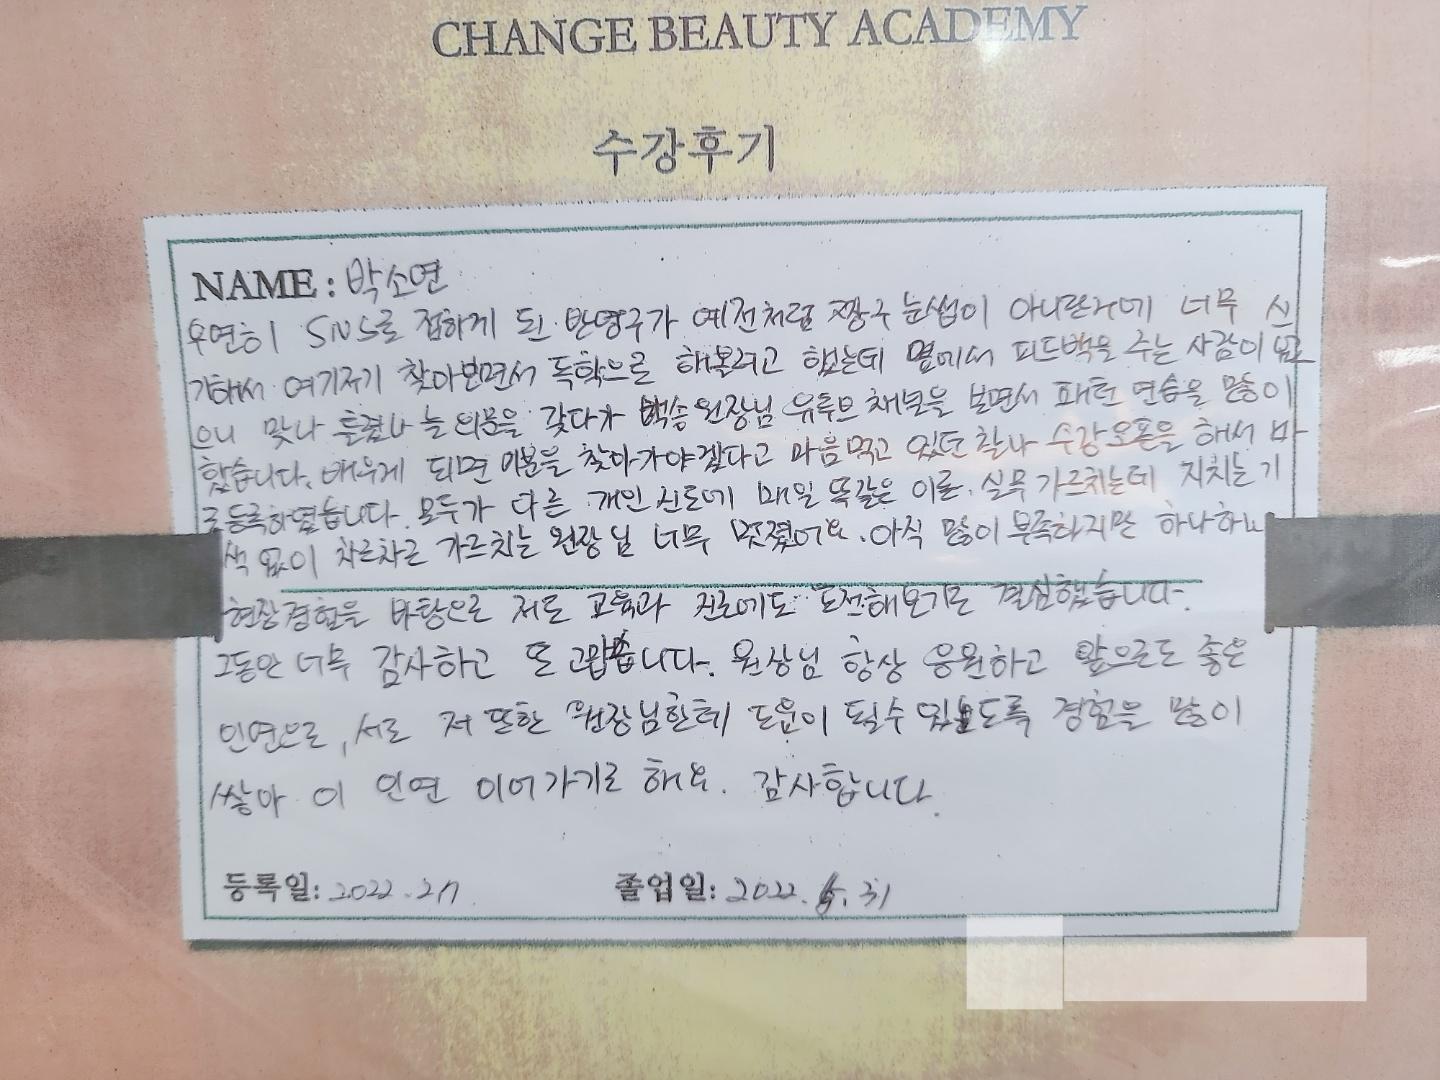 CHANGE BEAUTY ACADEMY
수강후기
NAME : 박소연
우연히 SNS로 접하게 된 반영구가 예전처럼 짱구눈썹이 아니란거에 너무 신
기해서 여기저기 찾아보면서 독학으로 해볼려고 했는데 옆에서 피드백을 주는 사람이 없
으니 맞나 틀렸나 늘 의문을 갖다가 백승원장님 유튜브 채널을 보면서 패턴 연습을 많이
했습니다. 배우게 되면 이분을 찾아가야겠다고 마음먹고 있던 찰나 수강오픈을 해서 바
로등록하였습니다. 모두가 다른 개인 진도에 매일 똑같은 이론, 실무 가르치는데 지치는 기
색 없이 차근차근 가르치는 원장님 너무 멋졌어요. 아직 많이 부족하지만 하나하나
현장경험을 바탕으로 저도 교육과 진로에도 도전해보기로 결심했습니다.
그동안 너무 감사하고 또 고맙습니다. 원장님 항상 응원하고 앞으로도 좋은
인연으로, 서로 저 또한 원장님한테 도움이 될수 있도록 경험을 많이
쌓아 이 인연 이어가기로 해요. 감사합니다.
등록일: 2022. 2.7 졸업일: 2022. 5. 31